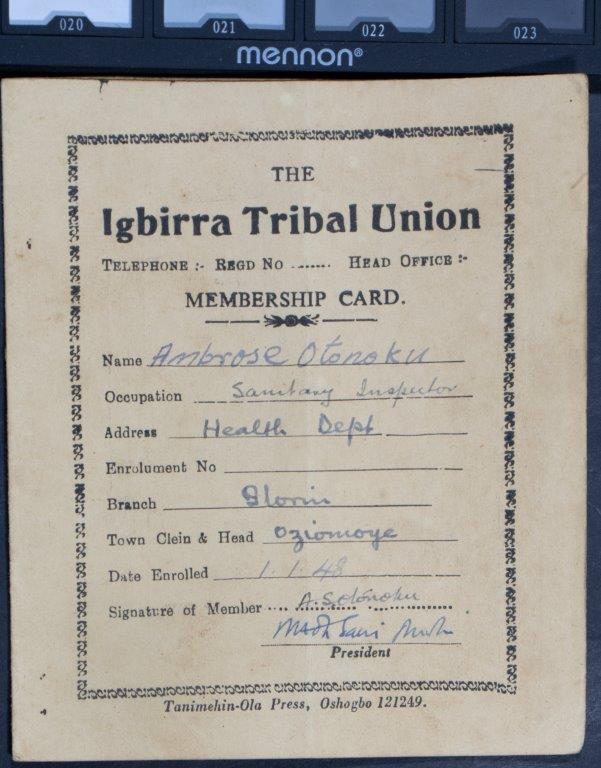 020 021 022 023
mennon®
THE
Igbirra Tribal Union
TELEPHONE :- REGD NO ....... HEAD OFFICE :-
MEMBERSHIP CARD.
Name Ambrose Otonoku
Occupation Sanitary Inspector
Address Health Dept
Enrolument No
Branch Ilorin
Town Clein & Head Oziomoye
Date Enrolled 1.1.48
Signature of Member .... A.S. Otonoku
President
Tanimehin-Ola Press, Oshogbo 121249.